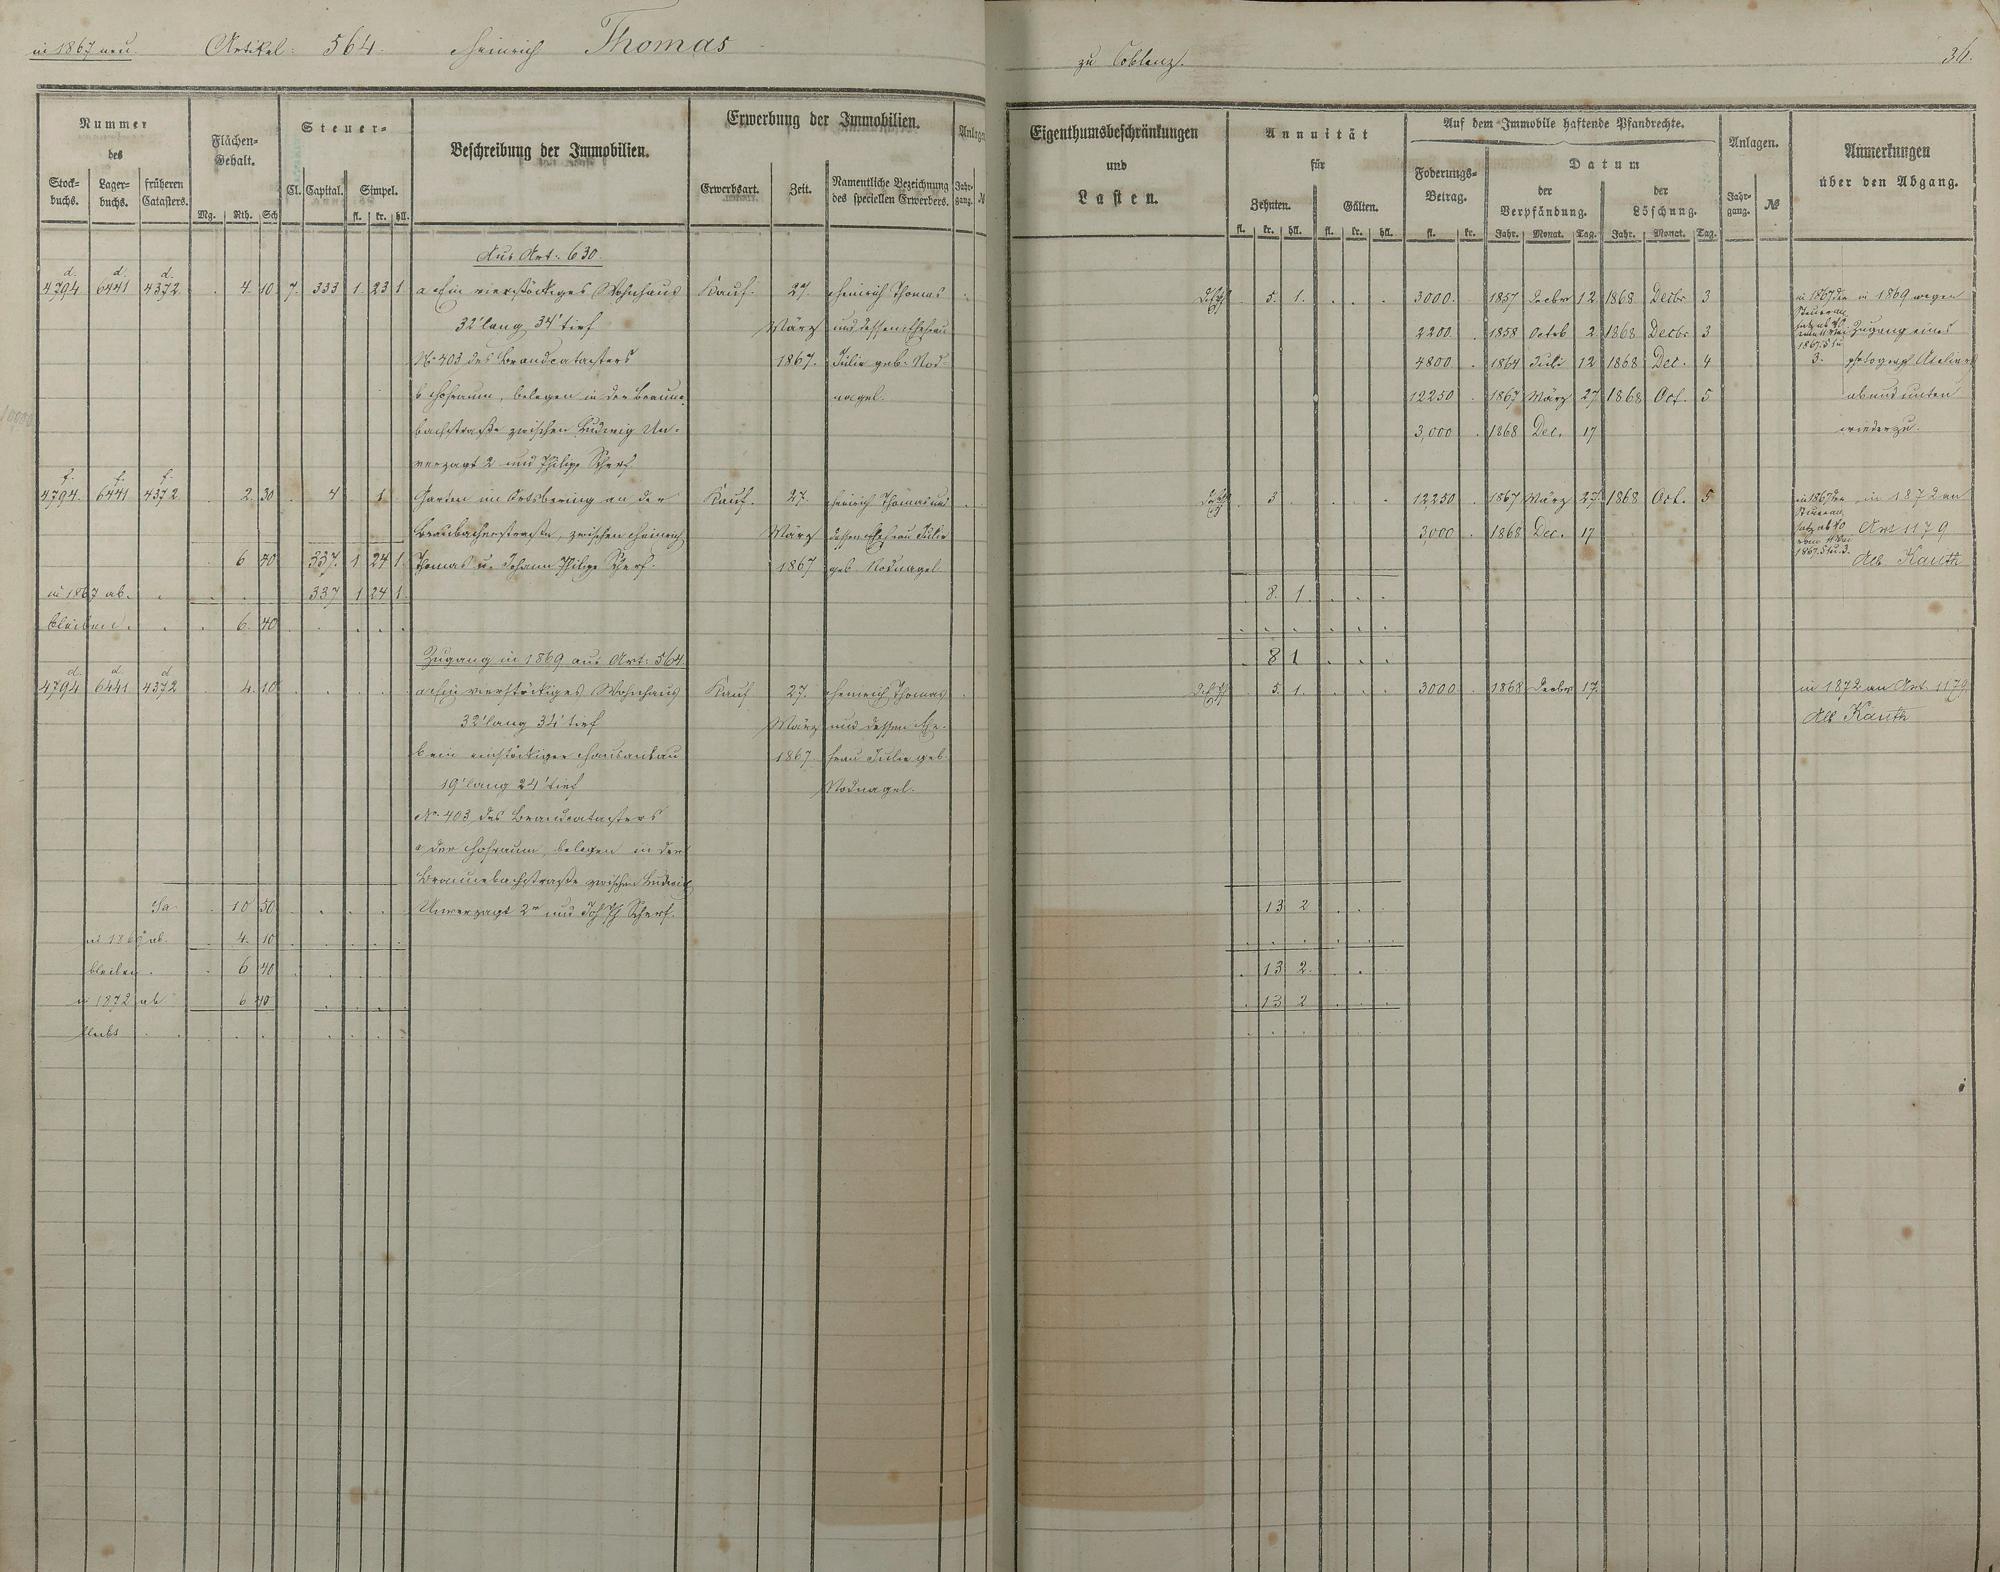 in 1867 neu. Artikel 564. Heinrich Thomas
zu Coblenz. 36.
Nummer des
Stock-buchs. Lager-buchs. früheren Catasters.
Flächen-Gehalt.
Mg. Rth. Sch
Steuer-
Cl. Capital. Simpel.
fl. kr. hll.
Beschreibung der Immobilien.
Erwerbung der Immobilien.
Erwerbsart. Zeit. Namentliche Bezeichnung des speciellen Erwerbers.
Jahr-gang.
Eigenthumsbeschränkungen und Lasten.
Annuität für
Zehnten. Gülten.
fl. kr. hll. fl. kr. hll.
Auf dem Immobile haftende Pfandrechte.
Foderungs-Betrag.
fl. kr.
Datum
der Verpfändung. der Löschung.
Jahr. Monat. Tag. Jahr. Monat. Tag.
Anlagen.
Jahr-gang. №
Anmerkungen über den Abgang.
Aus Art. 630.
d. d. d.
4794 6441 4372 . 4 10 7. 333 1 23 1 a Ein vierstöckiges Wohnhaus Kauf. 27. Heinrich Thomas
32' lang 34' tief März und dessen Ehefrau
No 403 des Brandcatasters 1867. Julie geb. Nod-
b Hofraum, belegen in der Braune- nagel.
bachstraße zwischen Ludwig Un-
verzagt 2 und Philipp Scherf
f. f. f.
4794 6441 4372 . 2. 30 . 4 . 1 Garten im Ortsbering an der Kauf. 27. Heinrich Thomas und
Braubacherstraße, zwischen Heinrich März dessen Ehefrau Julie
6 40 337. 1 24 1. Thomas u. Johann Philipp Scherf. 1867 geb. Nodnagel
in 1867 ab. 337 1 24 1.
bleiben . 6. 40
Zugang in 1869 aus Art. 564
d. d. d
4794 6441 4372 . 4. 10 a Ein vierstöckiges Wohnhaus Kauf 27. Heinrich Thomas
32' lang 34' tief März und dessen Ehe-
b ein einstöckiger Hausanbau 1867. frau Julie geb
19' lang 24' tief Nodnagel.
No. 403 des Brandcatasters
c der Hofraum, belegen in der
Braunebachstraße zwischen Ludwig
Sa . 10 50 Unverzagt 2r und Joh Ph Scherf.
in 1869 ab. 4. 10
bleiben . 6 40
in 1872 ab 6 40
bleibt
5. 1. 3000. 1857 Decbr 12 1868 Decbr. 3 in 1869 wegen
2200. 1858 Octob 2 1868 Decbr. 3 Zugang eines
4800 1864 Juli 12 1868 Dec. 4 photograph Ateliers
12250 1867 März 27 1868 Oct. 5 ab und unten
3,000 1868 Dec. 17 wieder zu.
3 12250 1867 März 27 1868 Oct. 5 in 1872 an
3,000 1868 Dec. 17 Art 1179
Alb Kauth
8. 1.
8 1
5. 1. 3000 1868 Decbr 17. in 1872 an Art 1179
Alb Kauth
13 2
13 2.
13 2